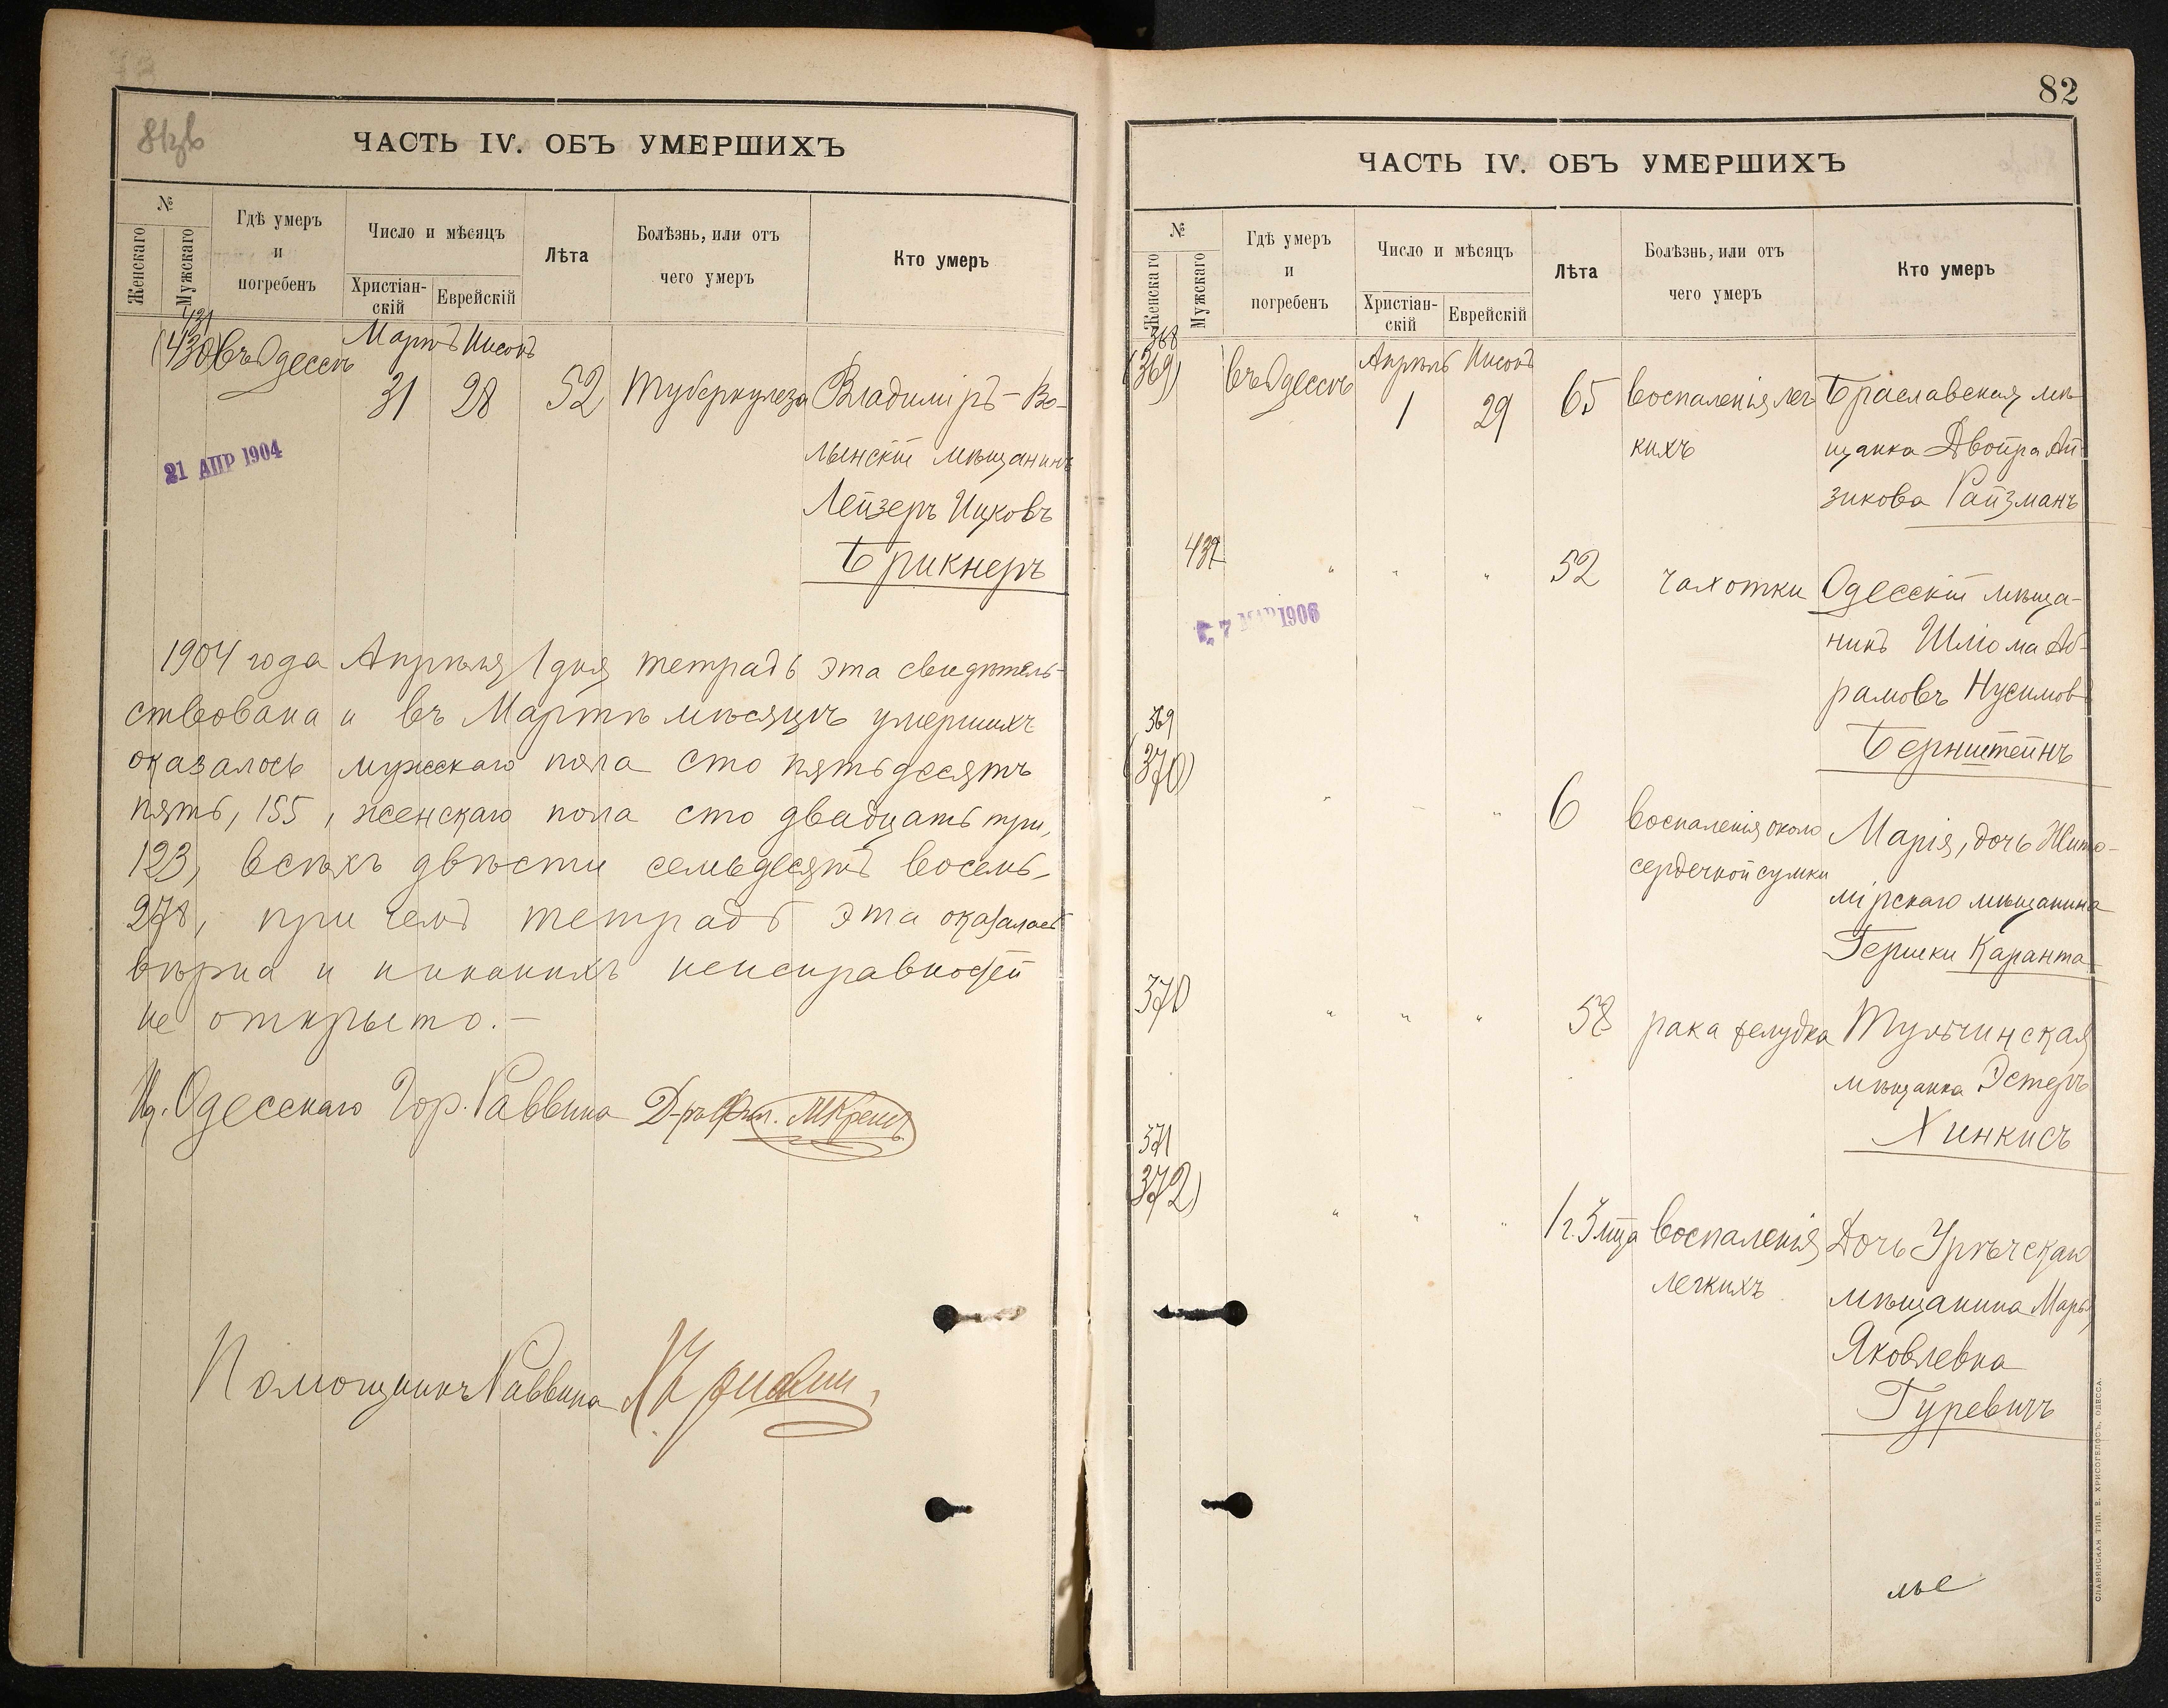 81зв
ЧАСТЬ IV. ОБЪ УМЕРШИХЪ
№
Женскаго
Мужскаго
Гдѣ умеръ
и
погребенъ
Число и мѣсяцъ
Христіан-
скій
Еврейскій
Лѣта
Болѣзнь, или отъ
чего умеръ
Кто умеръ
431
(430)
въ Одессѣ
Мартъ Нисонъ
31 28 52 Туберкулеза Владиміръ-Во-
лынскій мѣщанинъ
Лейзеръ Ицковъ
Брикнеръ
21 АПР 1904
1904 года Апрѣля 1 дня тетрадь эта свидѣтель-
ствована и въ Мартѣ мѣсяцѣ умершихъ
оказалось мужскаго пола сто пятьдесятъ
пять, 155, женскаго пола сто двадцать три,
123, всѣхъ двѣсти семьдесятъ восемь-
278, при чемъ тетрадь эта оказалась
вѣрна и никакихъ неисправностей
не открыто.-
И.д. Одесскаго Гор. Раввина Д-ръ Фил. М Крепсъ
Помощникъ Раввина
82
ЧАСТЬ IV. ОБЪ УМЕРШИХЪ
№
Женскаго
Мужскаго
Гдѣ умеръ
и
погребенъ
Число и мѣсяцъ
Христіан-
скій
Еврейскій
Лѣта
Болѣзнь, или отъ
чего умеръ
Кто умеръ
368
(369)
въ Одессѣ
Апрѣль Нисонъ
1 29 65 воспаленія лег- Браславская мѣ-
кихъ щанка Двойра Ай-
зикова Райзманъ
432 " " " 52 чахотки Одесскій мѣща-
нинъ Шлiома Аб-
рамовъ Нусимовъ
Бернштейнъ
7 МАР 1906
369
(370)
" " " 6 воспаленія около Марія, дочь Жито-
сердечной сумки мірскаго мѣщанина
Гершки Каранта
370 " " " 58 рака желудка Тульчинская
мѣщанка Эстеръ
Хинкисъ
371
(372)
" " " 1 г. 3 мца воспаленія Дочь Урѣчскаго
легкихъ мѣщанина Марья
Яковлевна
Гуревичъ
СЛАВЯНСКАЯ ТИП. Е. ХРИСОГЕЛОСЪ, ОДЕССА.